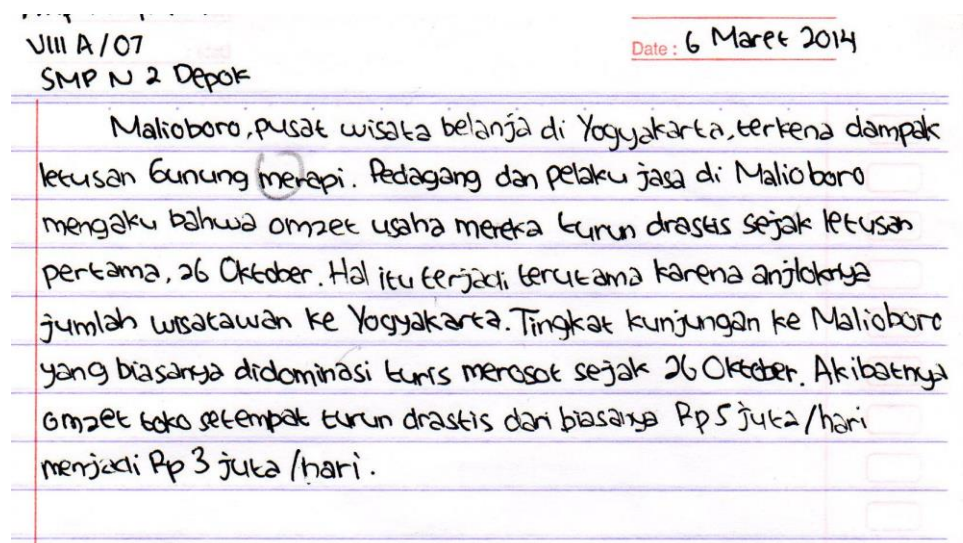 VIII A/07
Date : 6 Maret 2014
SMP N 2 Depok
Malioboro, pusat wisata belanja di Yogyakarta, terkena dampak
letusan Gunung merapi. Pedagang dan pelaku jasa di Malioboro
mengaku bahwa omzet usaha mereka turun drastis sejak letusan
pertama, 26 Oktober. Hal itu terjadi terutama karena anjloknya
jumlah wisatawan ke Yogyakarta. Tingkat kunjungan ke Malioboro
yang biasanya didominasi turis merosot sejak 26 Oktober. Akibatnya
omzet toko setempat turun drastis dari biasanya Rp 5 juta/hari
menjadi Rp 3 juta/hari.